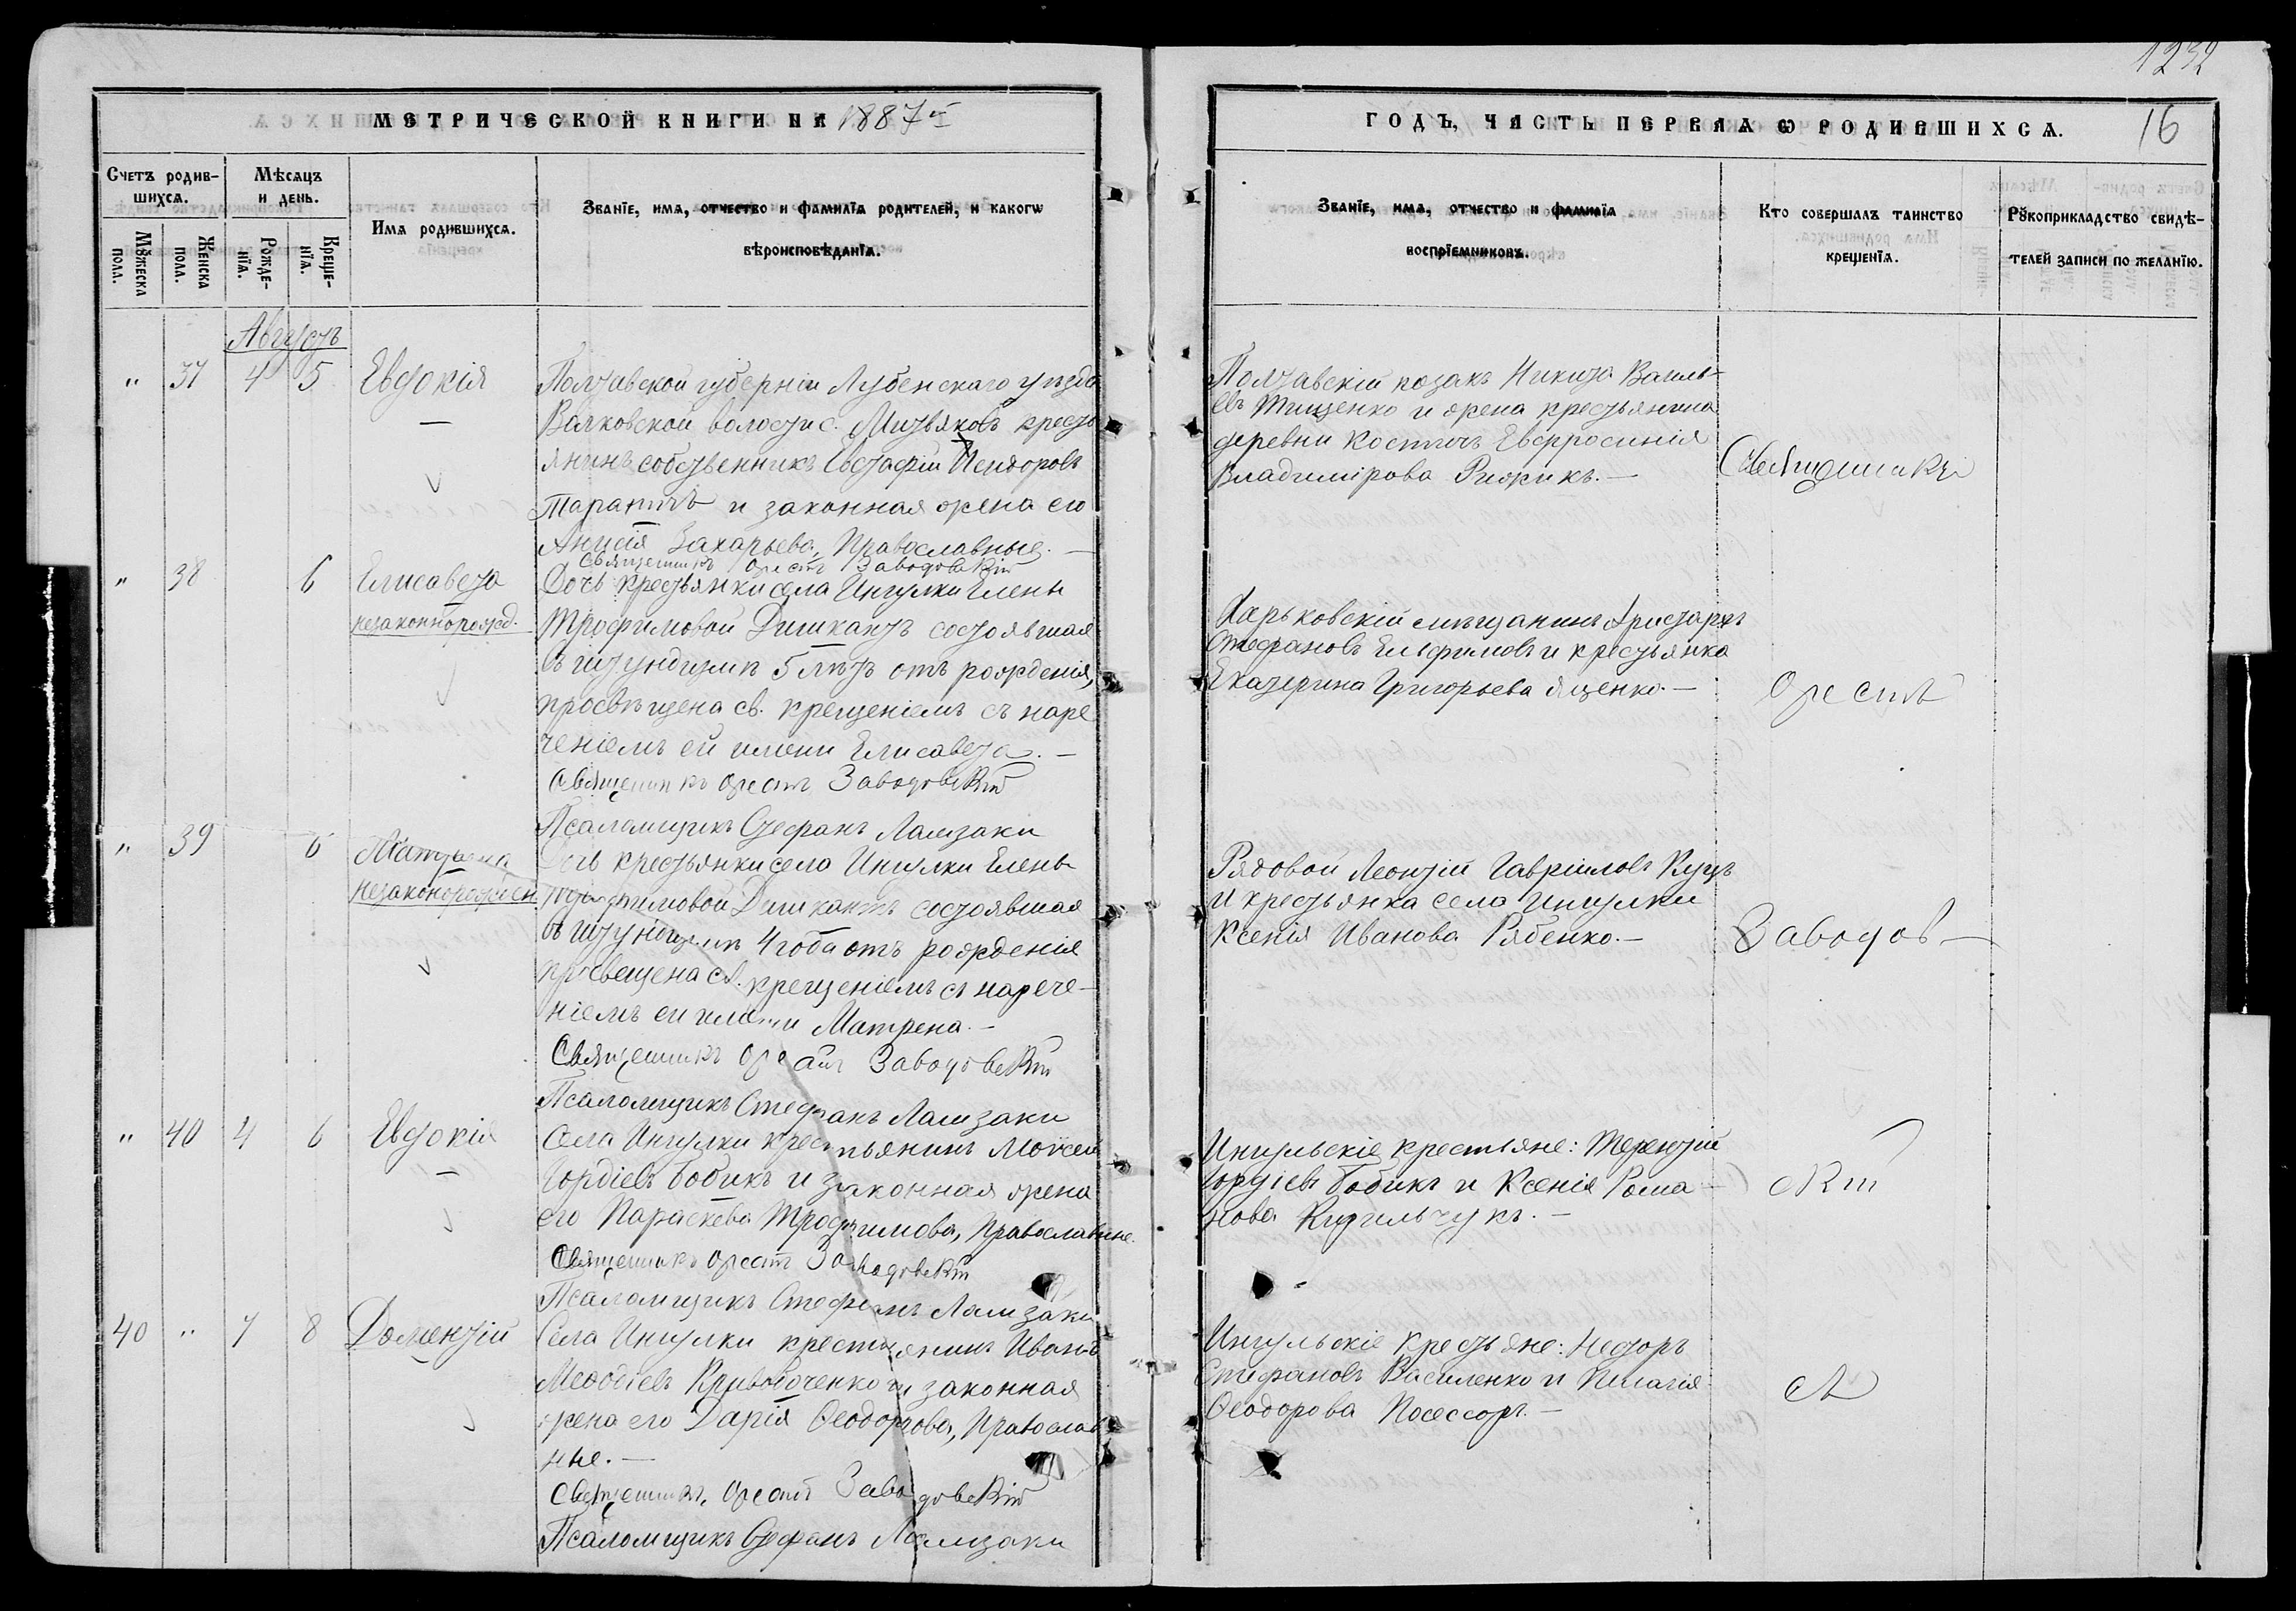 1232
МЕТРИЧЕСКОЙ КНИГИ НА 1887й
ГОДЪ, ЧАСТЬ ПЕРВАЯ Ѡ РОДИВШИХСѦ.
16
Счетъ родив-
шихсѧ.
Мѣсѧцъ
и день.
Мꙋжеска
пола.
Женска
пола.
Рожде-
нїѧ.
Креще-
нїѧ.
Имѧ родившихсѧ.
Званїе, имѧ, отчество и фамилїѧ родителей, и какогѡ
вѣроисповѣданїѧ.
Званїе, имѧ, отчество и фамилїѧ
воспрїемниковъ.
Кто совершалъ таинство
крещенїѧ.
Рꙋкоприкладство свидѣ-
телей записи по желанїю.
Августъ
" 37 4 5 Евдокія
Полтавской губерніи Лубенскаго уѣзда
Волковской волости с. Мизяковъ кресть
янинъ собственникъ Евстафій Исидоровъ
Тарантъ и законная жена его
Захарьева, Православные. —
Священникъ Орестъ Заводовскій
Полтавскій козакъ Никита Василь-
евъ Тищенко и жена крестьянина
деревни Костичъ Евфросинія
Владимірова Рижикъ. —
Священникъ
" 38 6 Елисавета
незаконнорожд.
Дочь крестьянки села Ингулки Елены
Трофимовой Дишкантъ состоявшая
въ штундизмѣ 5 лѣтъ отъ рожденія,
просвѣщена св. крещеніемъ съ наре
ченіемъ ей имени Елисавета. —
Священникъ Орестъ Заводовскій
Псаломщикъ Стефанъ Ламзаки
Харьковскій мѣщанинъ Аристархъ
Стефановъ Ельфимовъ и крестьянка
Екатерина Григорьева Яценко. —
Орестъ
" 39 6
незаконорожден.
Дочь крестьянки села Ингулки Елены
Трофимовой Дишкантъ состоявшая
въ штундизмѣ 4 года отъ рожденія
просвещена св. крещеніемъ съ нарече-
ніемъ ей имени Матрена. —
Священникъ Орестъ Заводовскій
Псаломщикъ Стефанъ Ламзаки
Рядовой Леонтій Гавріиловъ Куцъ
и крестьянка села Ингулки
Ксенія Иванова Рябенко. —
Заводов—
" 40 4 6 Евдокія
Села Ингулки крестьянинъ Моисей
Гордіевъ Бобикъ и законная жена
его Параскева Трофимова, Православные.
Священникъ Орестъ Заводовскій
Псаломщикъ Стефанъ Ламзаки
Ингульскіе крестьяне: Терентій
Гордіевъ Бобикъ и Ксенія Рома-
нова Кирильчукъ. —
скій
40 " 7 8 Дометій
Села Ингулки крестьянинъ Иванъ
Меѳодіевъ Кривобоченко и законная
жена его Дарія Ѳеодорова, Православ
ные. —
Священникъ Орестъ Заводовскій
Псаломщикъ Стефанъ Ламзаки
Ингульскіе крестьяне:
Стефановъ Василенко и Пелагія
Ѳеодорова Посессоръ. —